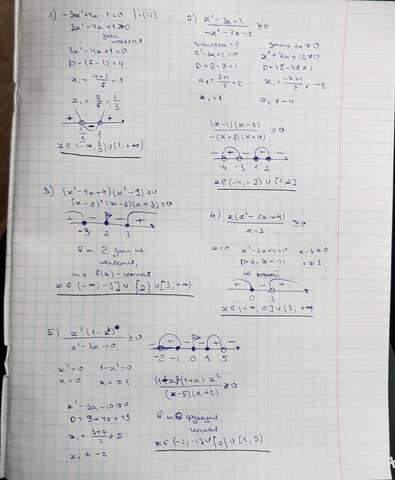 1) -3x²+4x-1<0 | ·(-1)
3x²-4x+1>0
знак
меняется
3x²-4x+1=0
D=16-12=4
x₁=(4+2)/6=1
x₂=2/6=1/3
+ - +
1/3 1
x∈(-∞, 1/3)∪(1, +∞)
2) (x²-3x+2)/(-x²-7x-12) ≥0
числитель=0
x²-3x+2=0
D=9-8=1
x₁=(3+1)/2=2
x₂=1
знам-ль≠0
x²+7x+12≠0
D=49-48=1
x₁=(-7+1)/2≠-3
x₂≠-4
(x-1)(x-2)/(-(x+3)(x+4)) ≥0
- + - + -
-4 -3 1 2
x∈(-4,-3)∪[1,2]
3) (x²-4x+4)(x²-9)≥0
(x-2)²(x-3)(x+3)≥0
+ - - +
-3 2 3
в т. 2 знак не
меняется,
т.к. f(x)-четная
x∈(-∞,-3]∪{2}∪[3,+∞)
4) x(x²-2x+4)/(x-3) ≥0
x=0
x²-2x+4=0
x-3≠0
≠3
нет корней
+ - +
0 3
x∈(-∞,0]∪(3,+∞)
5) x²(1-x²)/(x²-3x-10) ≥0
x²=0
x=0
1-x²=0
x=±1
x²-3x-10≠0
D=9+40=49
x₁=(3+7)/2≠5
x₂≠-2
-2 -1 0 1 5
(1-x)(1+x)x²/((x-5)(x+2)) ≥0
в т. 0 функция
четная
x∈(-2,-1]∪{0}∪[1,5)